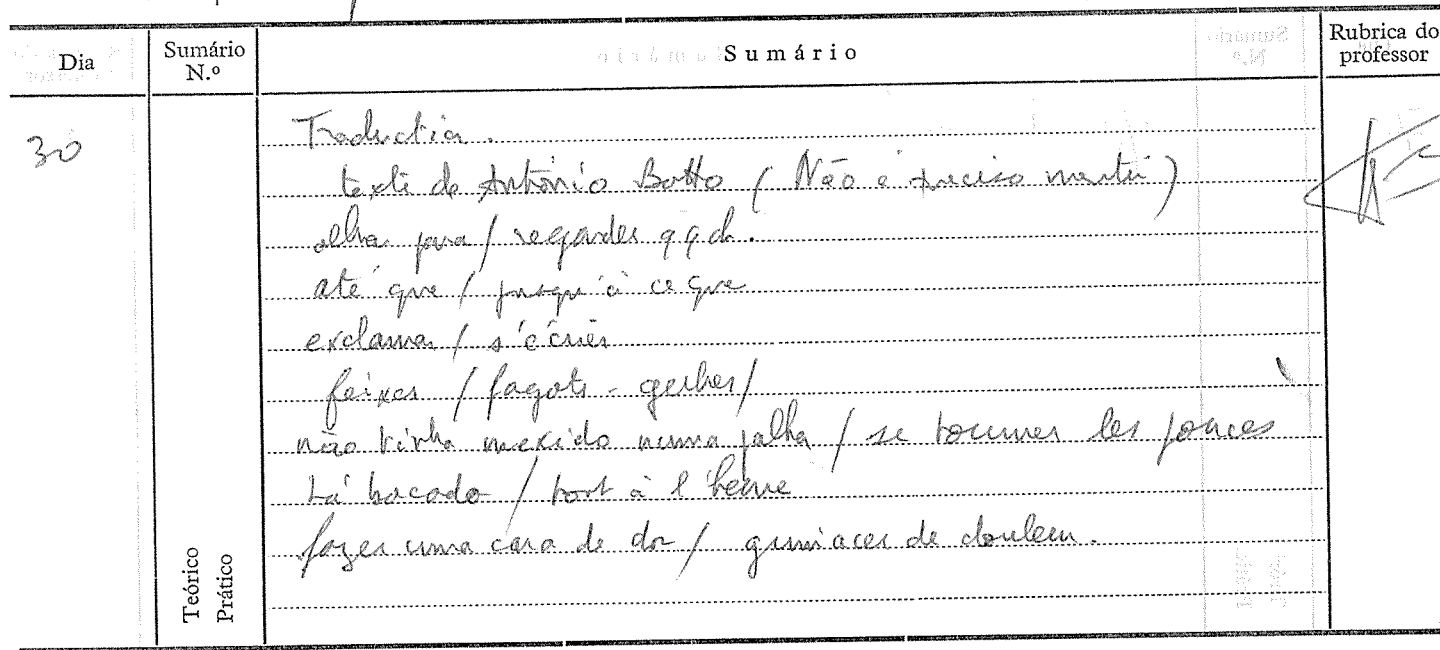 Dia
Sumário N.º
Sumário
Rubrica do professor
30
Traduction.
texte de António Botto (Não é preciso mentir)
olhar para / regarder qq ch.
até que / jusqu'à ce que
exclamar / s'écrier
feixes / fagots - gerbes /
não tinha mexido numa palha / se tourner les pouces
há bocado / tout à l'heure
fazer uma cara de dor / grimacer de douleur.
Teórico
Prático